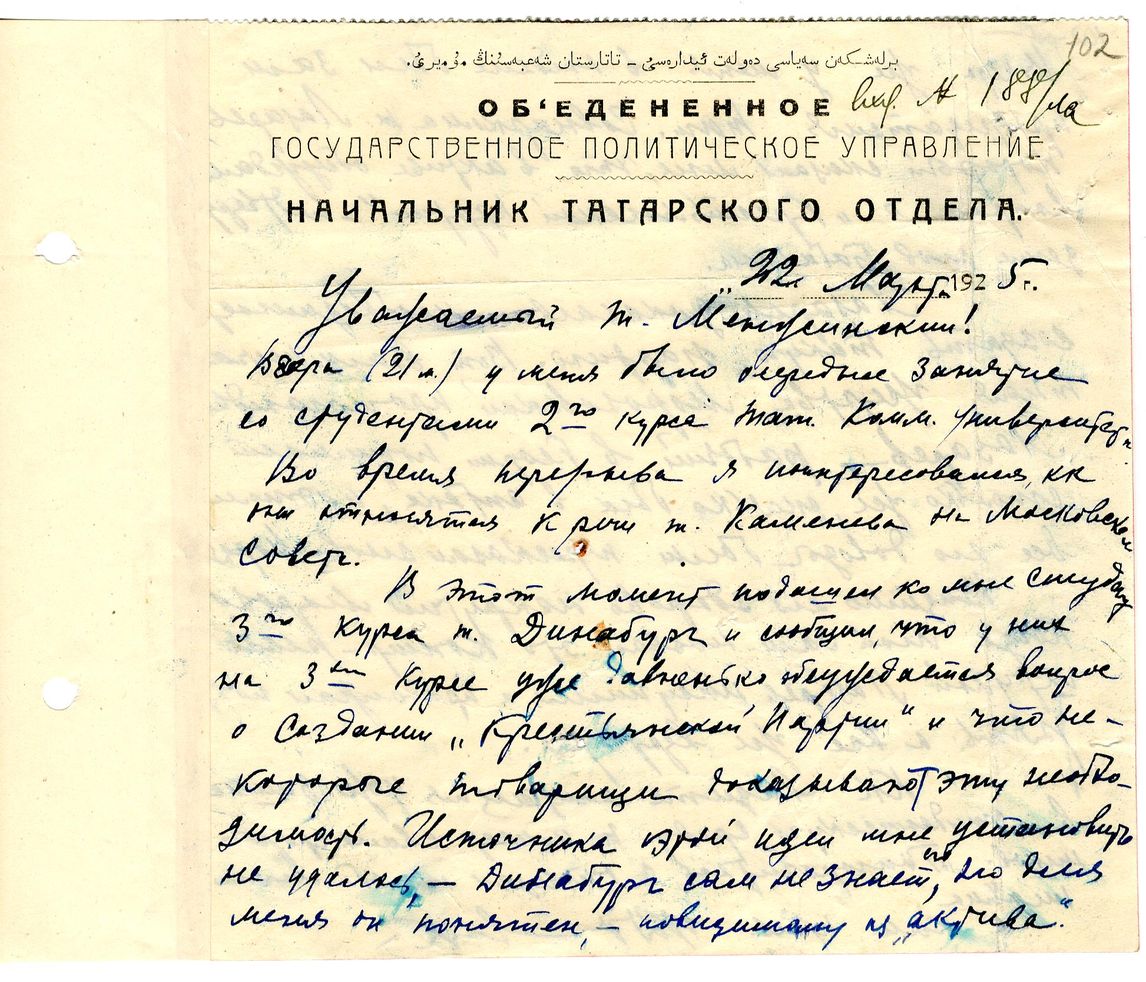 102
برلەشكەن سەياسى دەولەت ئيدارەسى – تاتارستان شەعبەسىنىڭ مۇديرى.
ОБ'ЕДЕНЕННОЕ вхд. № 188/ла
ГОСУДАРСТВЕННОЕ ПОЛИТИЧЕСКОЕ УПРАВЛЕНИЕ
НАЧАЛЬНИК ТАТАРСКОГО ОТДЕЛА.
„22“ Марта 1925 г.
Уважаемый т. Менжинский!
Вчера (21 м.) у меня было очередное занятие
со студентами 2го курса Тат. Комм. Университета.
Во время перерыва я поинтересовался, кк
они относятся к речи т. Каменева на Московском
Совете.
В этот момент подошел ко мне студент
3го курса т. Динабург и сообщил, что у них
на 3ем курсе уже давненько обсуждается вопрос
о создании „Крестьянской Партии“ и что не-
которые товарищи доказывают эту необхо-
димость. Источника этой идеи мне установить
не удалось, – Динабург сам не знает, но для
меня он понятен, – повидимому из „актива“.